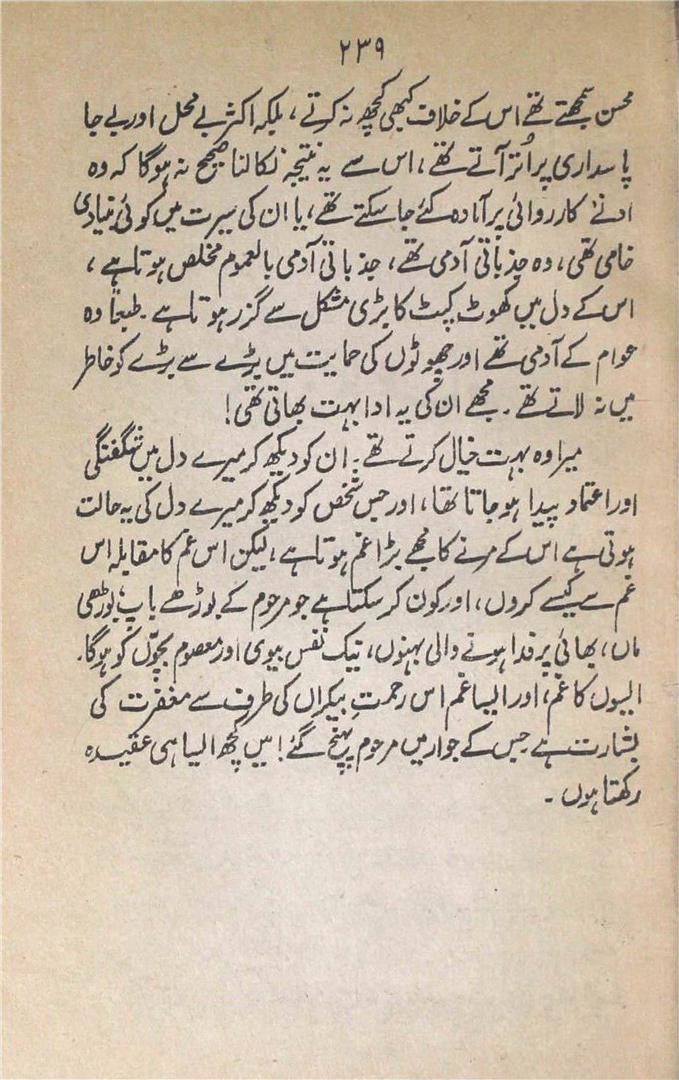 ۲۳۹
محسن سمجھتے تھے اس کے خلاف کبھی کچھ نہ کرتے، بلکہ اکثر بے محل اور بے جا
پاسداری پر اُتر آتے تھے، اس سے یہ نتیجہ نکالنا صحیح نہ ہوگا کہ وہ
ادنےٰ کارروائی پر آمادہ کئے جا سکتے تھے، یا ان کی سیرت میں کوئی بنیادی
خامی تھی، وہ جذباتی آدمی تھے، جذباتی آدمی بالعموم مخلص ہوتا ہے،
اس کے دل میں کھوٹ کپٹ کا بڑی مشکل سے گزر ہوتا ہے۔ طبعاً وہ
عوام کے آدمی تھے اور چھوٹوں کی حمایت میں بڑے سے بڑے کو خاطر
میں نہ لاتے تھے۔ مجھے ان کی یہ ادا بہت بھاتی تھی!
میرا وہ بہت خیال کرتے تھے۔ ان کو دیکھ کر میرے دل میں شگفتگی
اور اعتماد پیدا ہو جاتا تھا، اور جس شخص کو دیکھ کر میرے دل کی یہ حالت
ہوتی ہے اس کے مرنے کا مجھے بڑا غم ہوتا ہے، لیکن اس غم کا مقابلہ اس
غم سے کیسے کروں، اور کون کر سکتا ہے جو مرحوم کے بوڑھے باپ، بوڑھی
ماں، بھائی پر فدا ہونے والی بہنوں، نیک نفس بیوی اور معصوم بچّوں کو ہوگا۔
ایسوں کا غم، اور ایسا غم اس رحمتِ بیکراں کی طرف سے مغفرت کی
بشارت ہے جس کے جوار میں مرحوم پہنچ گئے! میں کچھ ایسا ہی عقیدہ
رکھتا ہوں۔